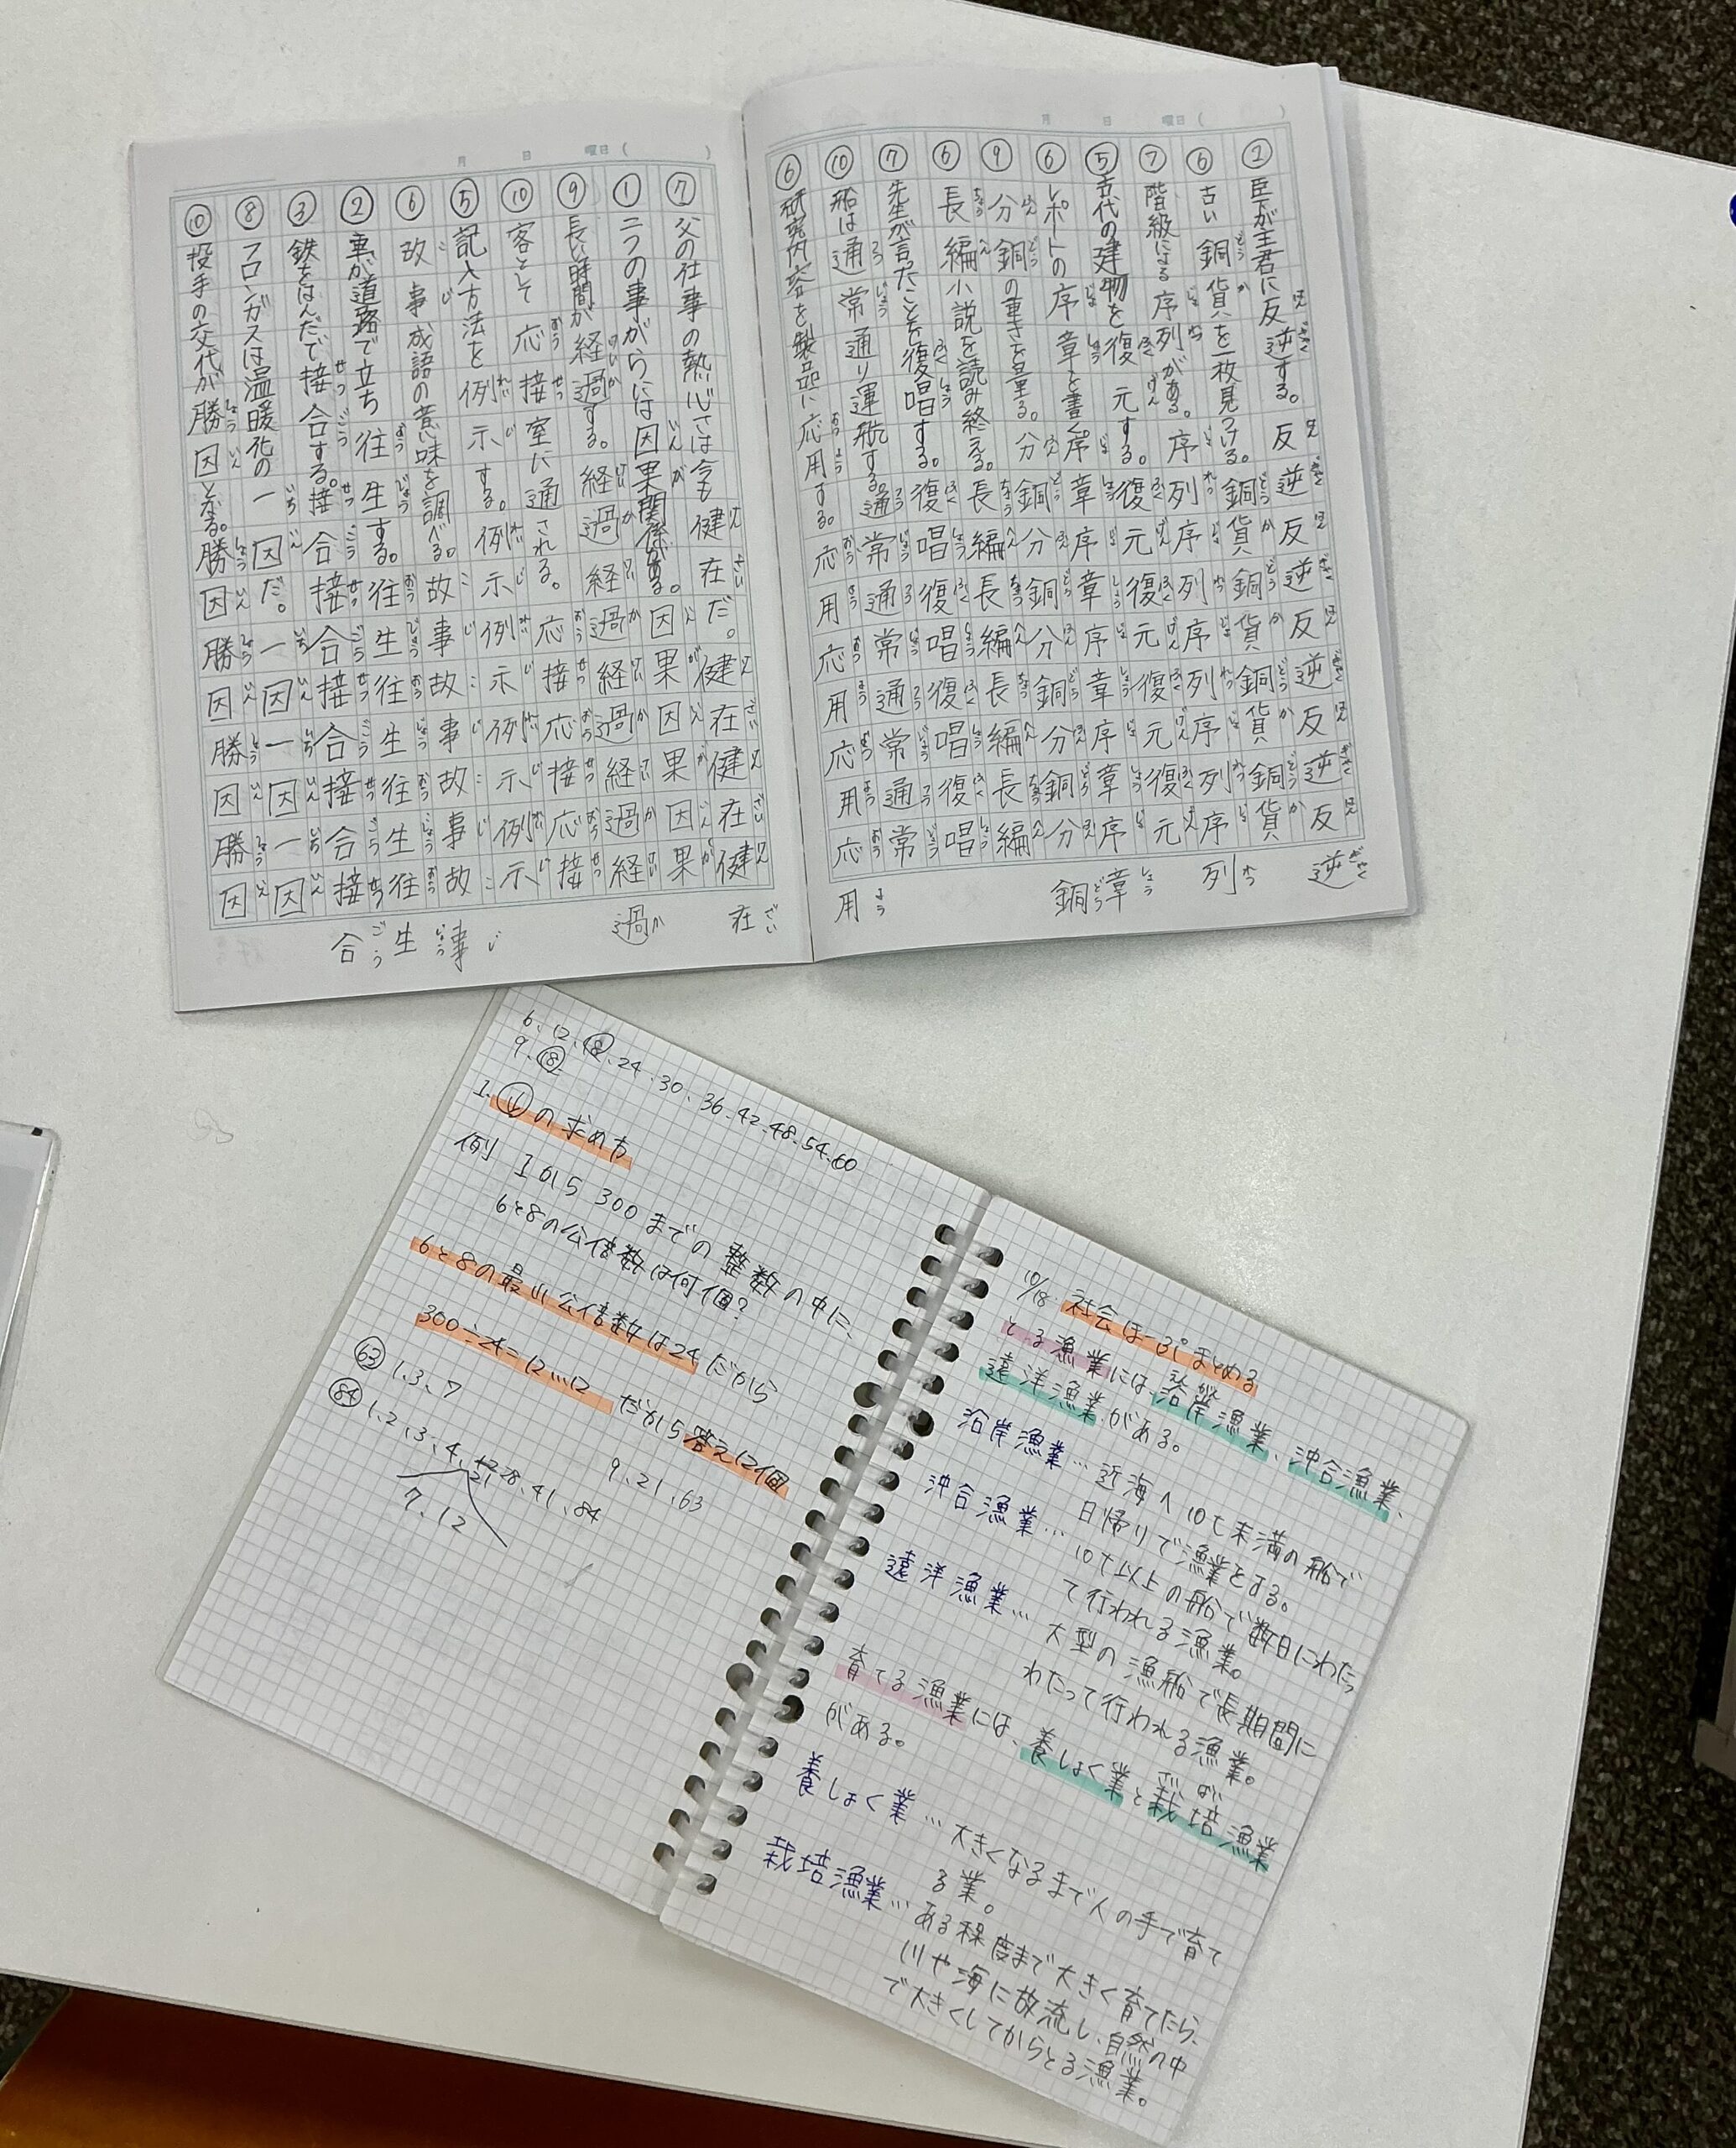 月 日 曜日( )
② 臣下が主君に反逆する。反逆反逆反逆反逆反逆
⑥ 古い銅貨を一枚見つける。銅貨銅貨銅貨銅貨
⑦ 階級による序列がある。序列序列序列序列序列
⑤ 古代の建物を復元する。復元復元復元復元
⑥ レポートの序章を書く。序章序章序章序章序章
⑨ 分銅の重さを量る。分銅分銅分銅分銅分銅
⑥ 長編小説を読み終える。長編長編長編長編
⑦ 先生が言ったことを復唱する。復唱復唱復唱復唱
⑩ 船は通常通り運航する。通常通常通常通常
⑥ 研究内容を製品に応用する。応用応用応用応用
月 日 曜日( )
⑦ 父の仕事の熱心さは今も健在だ。健在健在健在
① 二つの事がらには因果関係がある。因果因果因果
⑨ 長い時間が経過する。経過経過経過経過経過
⑩ 客として応接室に通される。応接応接応接
⑤ 記入方法を例示する。例示例示例示例示
⑥ 故事成語の意味を調べる。故事故事故事故事
② 車が道路で立ち往生する。往生往生往生往生
③ 鉄をはんだで接合する。接合接合接合接合接合
⑧ フロンガスは温暖化の一因だ。一因一因一因
⑩ 投手の交代が勝因となる。勝因勝因勝因勝因
6、12、18、24、30、36、42、48、54、60
9、18
の求め方
例 1から300までの整数の中に、
6と8の公倍数は何個?
6と8の最小公倍数は24だから
300÷24=12…12 だから答え12個
63 1、3、7 9、21、63
84 1、2、3、4、 28、41、84
7、12 21
10/18 社会 まとめる
とる漁業には、沿岸漁業、沖合漁業、
遠洋漁業がある。
沿岸漁業…近海へ10t未満の船で
日帰りで漁業をする。
沖合漁業…10t以上の船で数日にわたっ
て行われる漁業。
遠洋漁業…大型の漁船で長期間に
わたって行われる漁業。
育てる漁業には、養しょく業と栽培漁業
がある。
養しょく業…大きくなるまで人の手で育て
る業。
栽培漁業…ある程度まで大きく育てたら、
川や海に放流し、自然の中
で大きくしてからとる漁業。